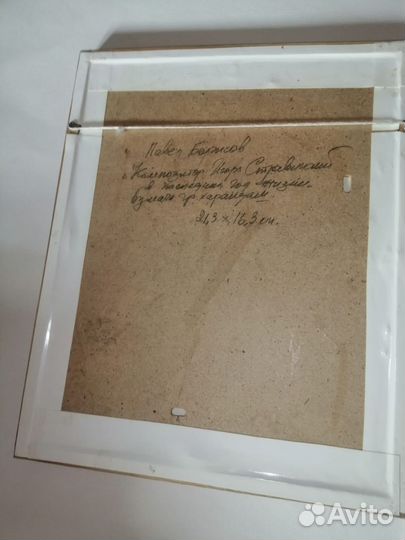 Павел Борисов
Композитор Игорь Стравинский
в последний год жизни.
гр. карандаш
21,3 x 16,3 см.
Avito